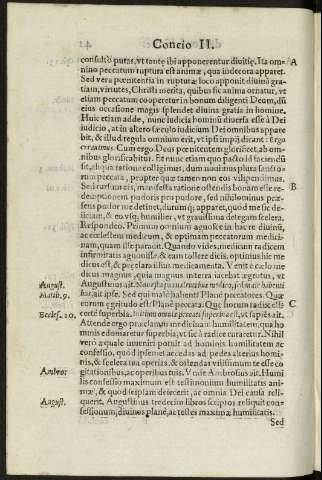 14 Concio II.
consulto putas, vt tantę ibi apponerentur diuitię. Ita om- A
nino peccatum ruptura est animæ, qua indecora apparet.
Sed vera pœnitentia in rupturæ loco apponit diuinā gra-
tiam, virtutes, Christi merita, quibus sic anima ornatur, vt
etiam peccatum cooperetur in bonum diligenti Deum, dū
eius occasione magis splendet diuina gratia in homine.
Huic etiam adde, nunc iudicia hominū diuersa esse à Dei
iudicio, at in altero sæculo iudicium Dei omnibus appare
bit, & illud regula omnium erit, vt ipsi impij dicant: Ergo
errauimus. Cum ergo Deus pœnitentem glorificet, ab om-
nibus glorificabitur. Et nunc etiam quo pacto id faciendū
sit, aliqua ratione colligimus, dum nouimus plura sancto-
rum peccata, propter quæ tamen non eos vilipendimus.
Sed rursum eis, manifesta ratione ostendis bonam esse re- B
demptionem pudoris pro pudore, sed nihilominus præ-
sens pudor me detinet, durumq́; apparet, quòd me sic de-
ijciam, & eo vsq; humilier, vt grauissima detegam scelera.
Respondeo. Primum omnium agnosce in hac re diuinū,
ac ecclestem medicum, & optimam peccatorum medici-
nam, quam ille parauit. Quando vides, medicum radicem
infirmitatis agnouisse, & eam tollere dicis, optimus hic me
dicus est, & præclara illius medicamenta. Venit è cælo me
dicus magnus, quia magnus in terra iacebat ægrotus, vt
August. Augustinus ait. Non est opus sanis medico, sed male habenti
Matth. 9. bus, ait ipse. Sed qui male habenti? Planè peccatores. Quæ
eorum ægritudo est? Planè peccatum. Quæ horum radix est? C
Eccles. 10. certè superbia. Initium omnis peccati superbia est, vt sapiēs ait.
Attende ergo præclaram medicinam humilitatem, qua ho
minis edomaretur superbia, vt sic à radice curaretur. Nihil
verò æquale inueniri potuit ad hominis humilitatem ac
confessio, quòd ipsemet accedas ad pedes alterius homi-
nis, & scelera tua aperias, & ostendas vilissimum te esse co
Ambros. gitationibus, ac operibus tuis. Vnde Ambrosius ait. Humi
lis confessio maximum est testimonium humilitatis ani-
mæ, & quòd te ipsum deiecerit, ac omnia Dei causa reli-
August. querit. Augustinus tredecim libros scriptos reliquit con-
fessionum, diuinos planè, ac testes maximæ humilitatis.
Sed